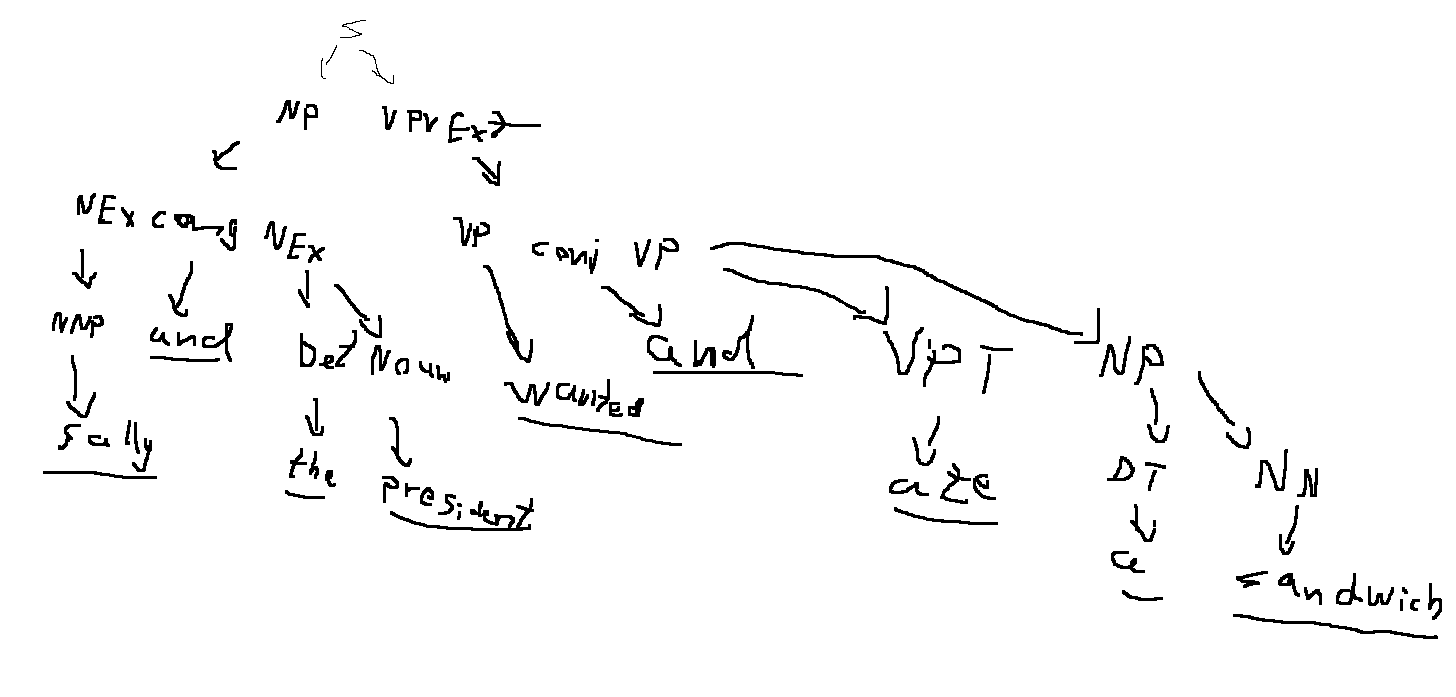 S
NP VPVEx
NEx conj NEx VP conj VP
NNP and Det Noun wanted and ViPT NP
Sally the president ate DT NN
a sandwich